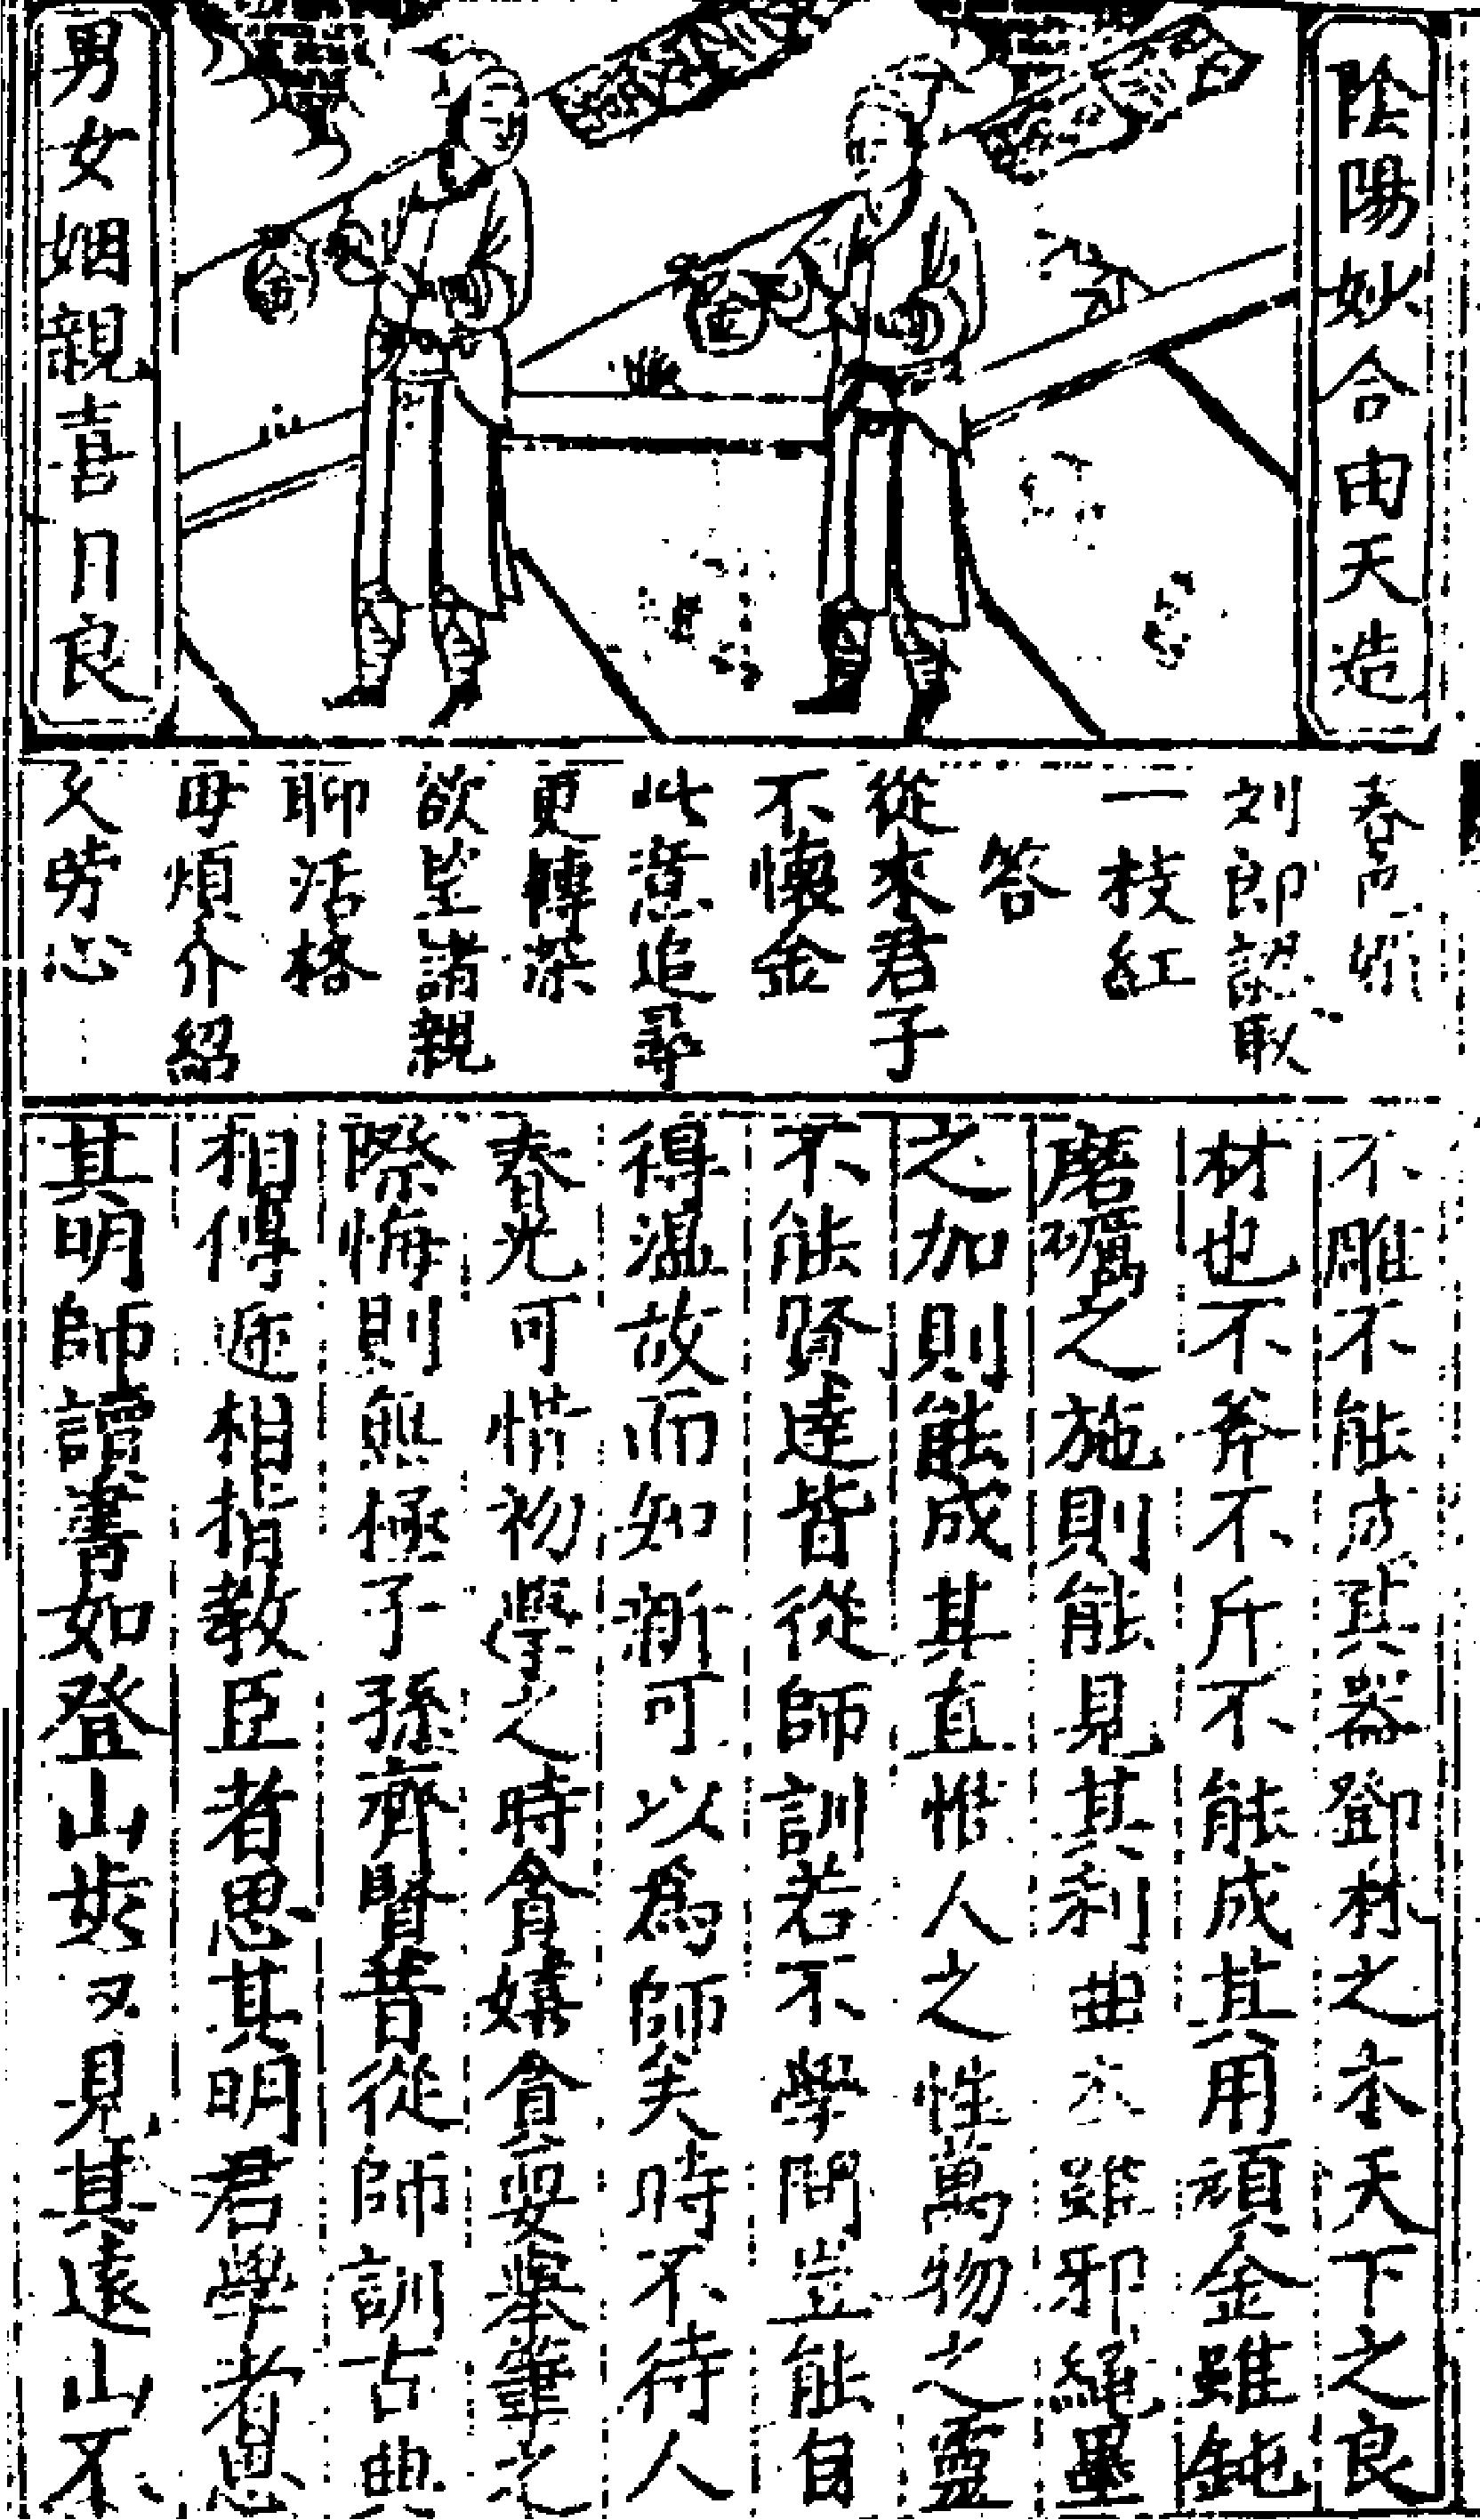 陰陽妙合由天造
男女姻親喜月良
春
刘郎認取
一枝紅
答
從來君子
不懷金
此意追尋
更轉深
欲望諸親
聊活格
毋煩介紹
久勞心
不雕不能成其器鄧林之木天下之良
材也不斧不斤不能成其用頑金雖鈍
磨礪之施則能見其利曲木雖邪繩墨
之加則能成其直惟人之性萬物之靈
不能賢達皆從師訓若不學問豈能自
得温故而知新可以為師矣時不待人
春光可惜初學之時貪嬉貪耍舉筆之
際悔則無極子孫齊賢昔從師訓古典
相傳逓相指教臣者思其明君學者思
其明師讀書如登山步又見其遠山不